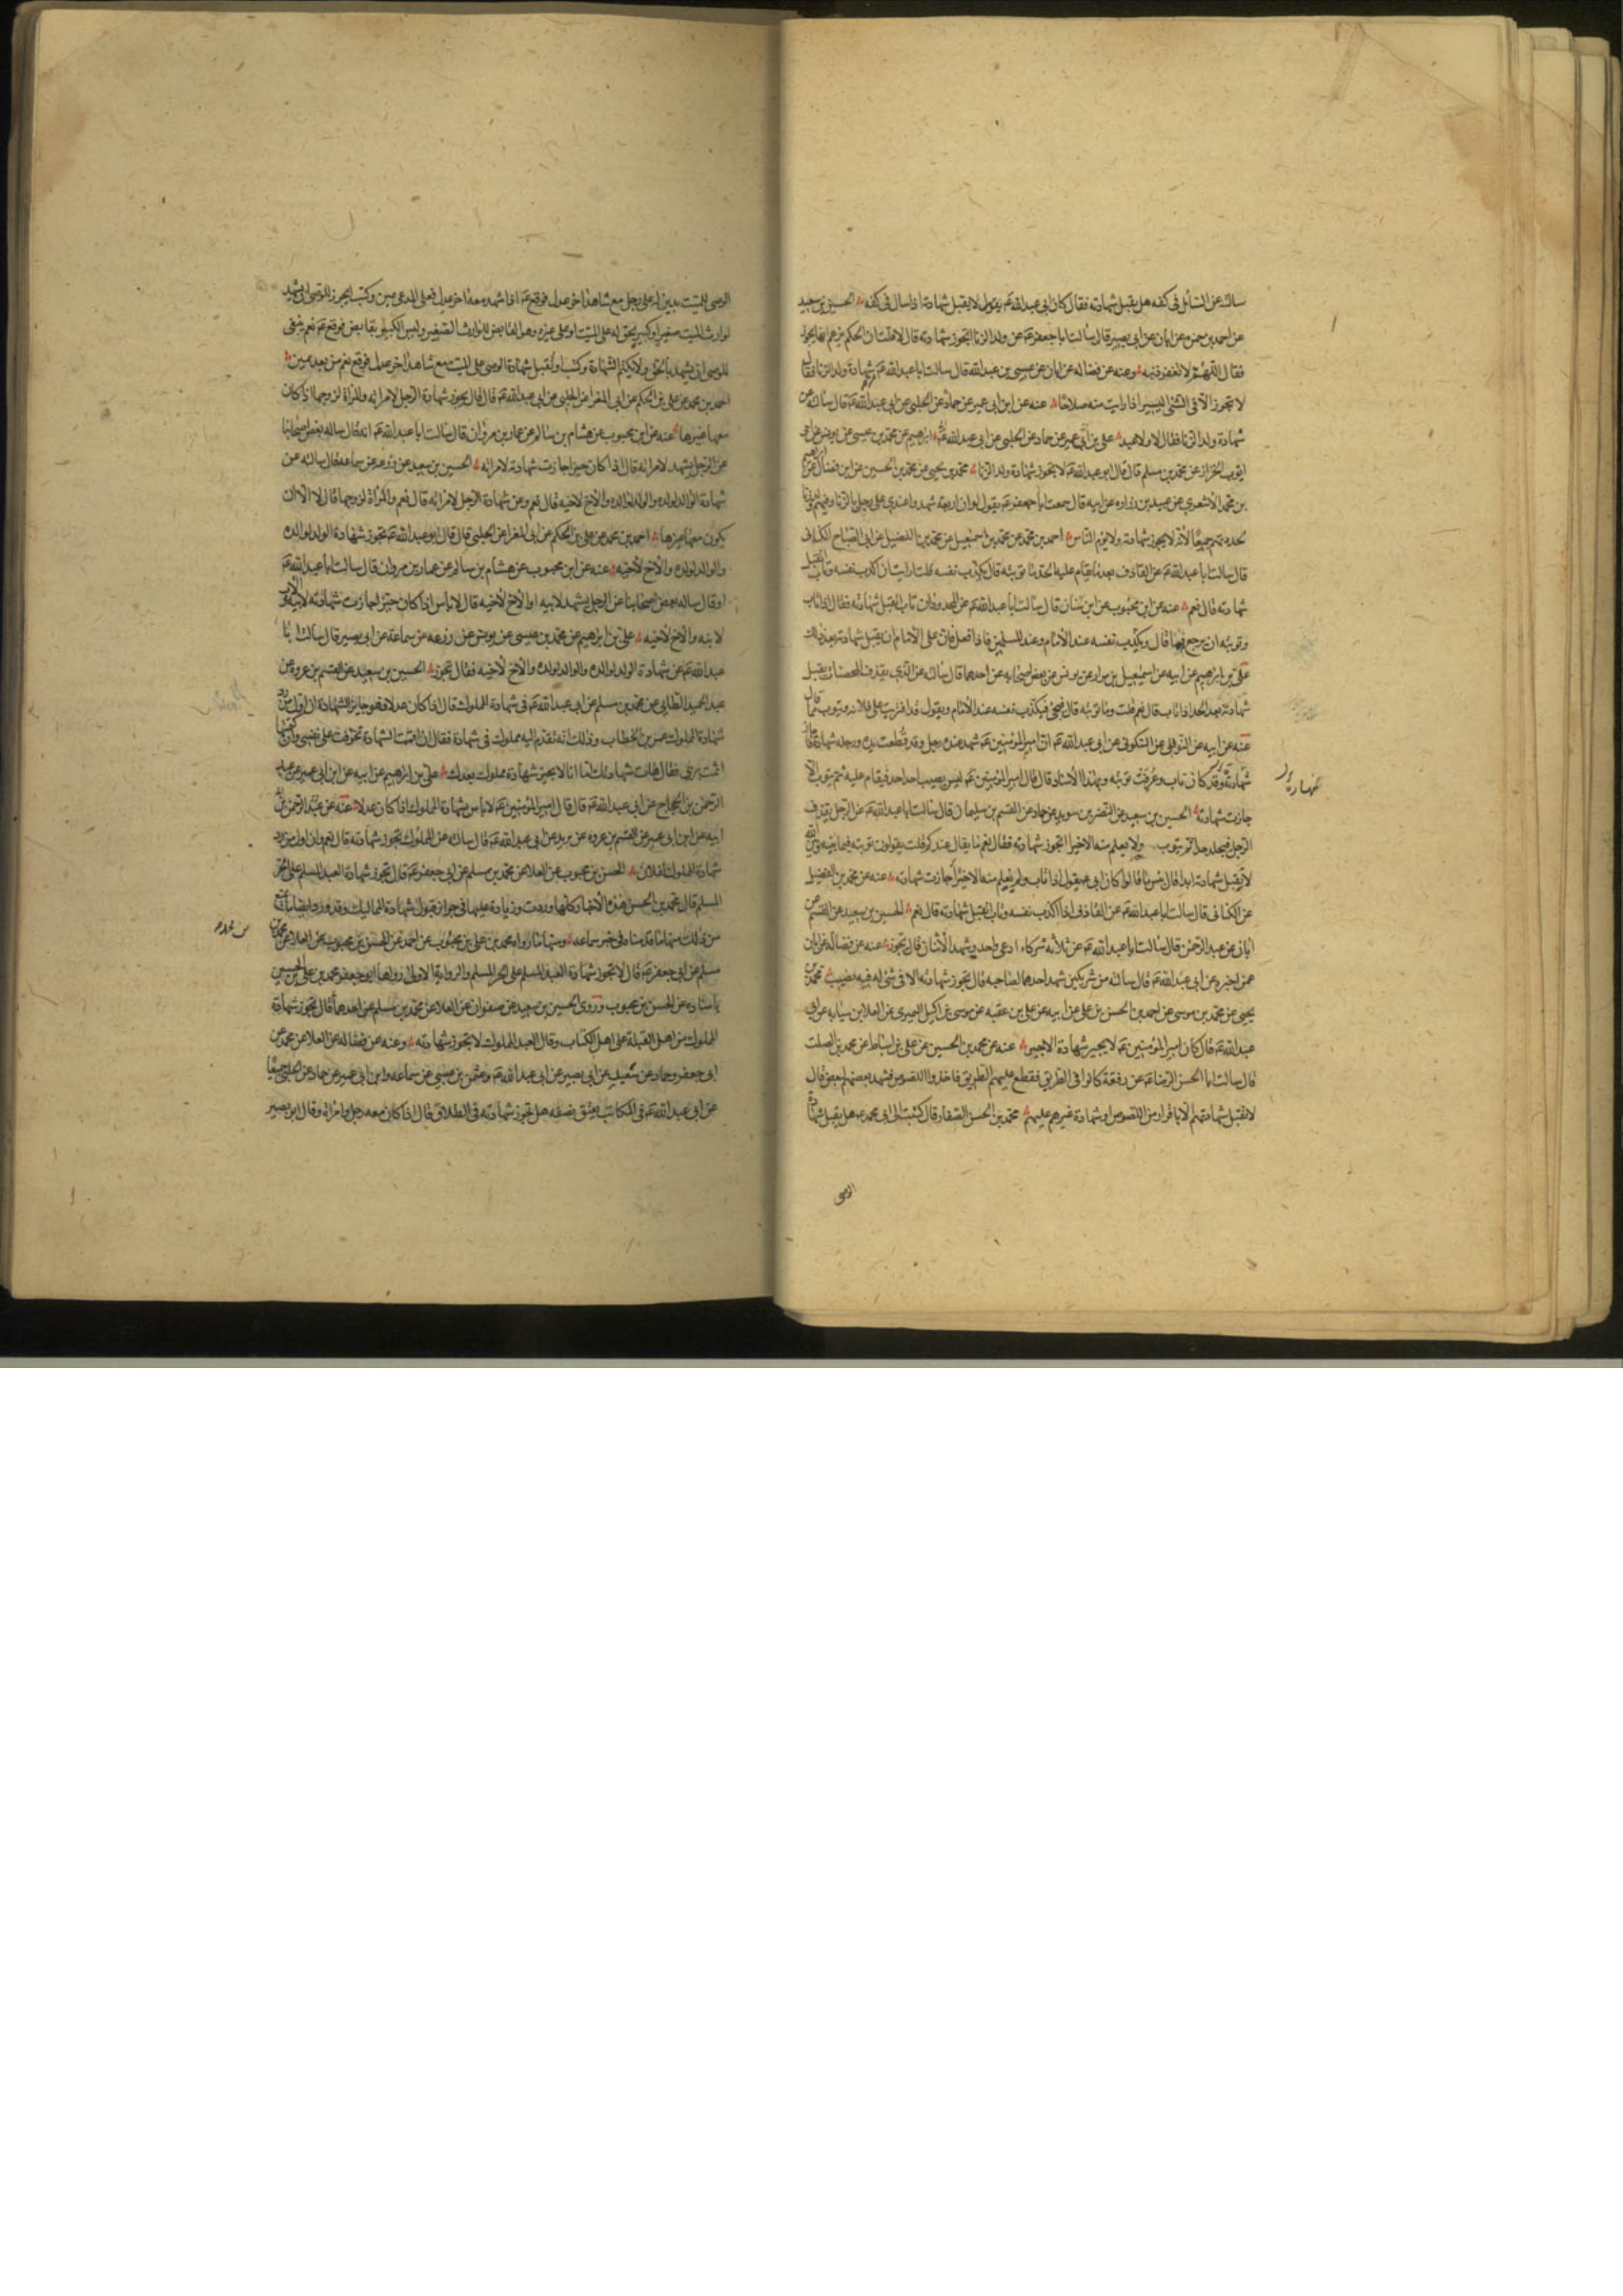 سالته عن السائل فى كفه هل يقبل شهادته فقال كان ابى عبد الله عم يقول لا يقبل شهادته اذا سال فى كفه الحسين بن سعيد
عن احمد بن حمزه عن ابان عن ابى بصير قال سالت ابا جعفر عم عن ولد الزنا اتجوز شهادته قال لا قلت ان الحكم يزعم انها تجوز
فقال اللهم لا تغفر ذنبه وعنه عن فضاله عن ابان عن عيسى بن عبد الله قال سالت ابا عبد الله عم عن شهادة ولد الزنا فقال
لا تجوز الا فى الشئ اليسير اذا رايت منه صلاحا عنه عن ابن ابى عمير عن حماد عن الحلبى عن ابى عبد الله عم قال سالته عن
شهادة ولد الزنا فقال لا ولا عبد على بن ابراهيم عن محمد بن عيسى عن يونس عن ابى
ايوب الخزاز عن محمد بن مسلم قال قال ابو عبد الله عم لا تجوز شهادة ولد الزنا محمد بن يحيى عن محمد بن الحسين عن ابن فضال عن ابراهيم
بن محمد الاشعرى عن عبيد بن زراره عن ابيه قال سمعت ابا جعفر عم يقول لو ان اربعة شهدوا عندى على رجل بالزنا وفيهم ولد زنا
لحددتهم جميعا لانه لا يجوز شهادته ولا يؤم الناس احمد بن محمد عن محمد بن اسمعيل عن محمد بن الفضيل عن ابى الصباح الكنانى
قال سالت ابا عبد الله عم عن القاذف بعد ما يقام عليه الحد ما توبته قال يكذب نفسه قلت ارايت ان اكذب نفسه وتاب اتقبل
شهادته قال نعم عنه عن ابن محبوب عن ابن سنان قال سالت ابا عبد الله عم عن المحدود ان تاب اتقبل شهادته فقال اذا تاب
وتوبته ان يرجع فيما قال ويكذب نفسه عند الامام وعند المسلمين فاذا فعل فان على الامام ان يقبل شهادته بعد ذلك
على بن ابراهيم عن ابيه عن اسمعيل بن مرار عن يونس عن بعض اصحابه عن احدهما قال سالته عن الذى يقذف المحصنات يقبل
شهادته بعد الحد اذا تاب قال نعم قلت وما توبته قال فيجئ فيكذب نفسه عند الامام ويقول قد افتريت على فلانه ويتوب مما قال
عنه عن ابيه عن النوفلى عن السكونى عن ابى عبد الله عم ان امير المؤمنين عم شهد عنده رجل وقد قطعت يده ورجله شهادة فاجاز
شهادته وقد كان تاب وعرفت توبته وبهذا الاسناد قال قال امير المؤمنين عم ليس يصيب احد حدا فيقام عليه ثم يتوب الا
جازت شهادته الحسين بن سعيد عن النضر بن سويد عن حماد عن القسم بن سليمان قال سالت ابا عبد الله عم عن الرجل يقذف
الرجل فيجلد حدا ثم يتوب ولا يعلم منه الا خير اتجوز شهادته فقال نعم ما يقال عندكم قلت يقولون توبته فيما بينه وبين الله
لا يقبل شهادته ابدا قال بئس ما قالوا كان ابى يقول اذا تاب ولم يعلم منه الا خيرا جازت شهادته عنه عن محمد بن الفضيل
عن الكنانى قال سالت ابا عبد الله عم عن القاذف اذا اكذب نفسه وتاب اتقبل شهادته قال نعم الحسين بن سعيد عن القسم عن
ابان عن عبد الرحمن قال سالت ابا عبد الله عم عن ثلاثه شركاء ادعى واحد وشهد الاثنان قال تجوز عنه عن فضاله عن ابان
عمن اخبره عن ابى عبد الله عم قال سالته عن شريكين شهد احدهما لصاحبه قال تجوز شهادته الا فى شئ له فيه نصيب محمد بن
يحيى عن محمد بن موسى عن احمد بن الحسن بن على عن ابيه عن على بن عقبه عن موسى بن اكيل النميرى عن العلا بن سيابه عن ابى
عبد الله عم قال كان امير المؤمنين عم لا يجيز شهادة الاجير عنه عن محمد بن الحسين عن على بن اسباط عن محمد بن الصلت
قال سالت ابا الحسن الرضا عم عن رفقة كانوا فى الطريق فقطع عليهم الطريق فاخذوا اللصوص فشهد بعضهم لبعض قال
لا تقبل شهادتهم الا باقرار من اللصوص او شهادة غيرهم عليهم محمد بن الحسن الصفار قال كتبت الى ابى محمد عم هل يقبل شهادة
الوصى
الوصى للميت بدين له على رجل مع شاهد اخر عدل فوقع عم اذا شهد معه اخر عدل فعلى المدعى يمين وكتب ايجوز للوصى ان يشهد
لوارث الميت صغير او كبير بحق له على الميت او على غيره وهو القابض للوارث الصغير وليس الكبير بقابض فوقع عم نعم ينبغى
للوصى ان يشهد بالحق ولا يكتم الشهادة وكتب او تقبل شهادة الوصى على الميت مع شاهد اخر عدل فوقع نعم من بعد يمين
احمد بن محمد عن على بن الحكم عن ابى المغرا عن الحلبى عن ابى عبد الله عم قال قال يجوز شهادة الرجل لامراته والمراة لزوجها اذا كان
معها غيرها عنه عن ابن محبوب عن هشام بن سالم عن عمار بن مروان قال سالت ابا عبد الله عم او قال ساله بعض اصحابنا
عن الرجل يشهد لامراته قال اذا كان خيرا جازت شهادته لامراته الحسين بن سعيد عن زرعه عن سماعه قال سالته عن
شهادة الوالد لولده والولد لوالده والاخ لاخيه قال نعم وعن شهادة الرجل لامراته قال نعم والمراة لزوجها قال لا الا ان
يكون معها غيرها احمد بن محمد عن على بن الحكم عن ابى المغرا عن الحلبى قال قال ابو عبد الله عم تجوز شهادة الولد لوالده
والوالد لولده والاخ لاخيه عنه عن ابن محبوب عن هشام بن سالم عن عمار بن مروان قال سالت ابا عبد الله عم
او قال ساله بعض اصحابنا عن الرجل يشهد لابيه او الاخ لاخيه قال لا باس اذا كان خيرا جازت شهادته لابيه والاب
لابنه والاخ لاخيه على بن ابراهيم عن محمد بن عيسى عن يونس عن زرعه عن سماعة عن ابى بصير قال سالت ابا
عبد الله عم عن شهادة الولد لوالده والوالد لولده والاخ لاخيه فقال تجوز الحسين بن سعيد عن القسم بن عروه عن
عبد الحميد الطائى عن محمد بن مسلم عن ابى عبد الله عم فى شهادة المملوك قال اذا كان عدلا فهو جايز الشهادة ان اول من رد
شهادة المملوك عمر بن الخطاب وذلك انه تقدم اليه مملوك فى شهادة فقال ان اقمت الشهادة تخوفت على نفسى وان كتمتها
اثمت بربى فقال هات شهادتك اما انا لا نجيز شهادة مملوك بعدك على بن ابراهيم عن ابيه عن ابن ابى عمير عن عبد
الرحمن بن الحجاج عن ابى عبد الله عم قال قال امير المؤمنين عم لا باس بشهادة المملوك اذا كان عدلا عنه عن
ابيه عن ابن ابى عمير عن القسم بن عروه عن بريد عن ابى عبد الله عم قال سالته عن المملوك تجوز شهادته قال نعم وان اول من رد
شهادة المملوك لفلان الحسن بن محبوب عن العلا عن محمد بن مسلم عن ابى جعفر عم قال تجوز شهادة العبد المسلم على الحر
المسلم قال محمد بن الحسن هذه الاخبار كلها وردت وزيادة عليها فى جواز قبول شهادة المماليك وقد ورد ايضا ما
من ذلك منها ما قدمناه فى خبر سماعه ومنها ما رواه محمد بن على بن محبوب عن احمد عن الحسن بن محبوب عن العلا عن محمد بن
مسلم عن ابى جعفر عم قال لا تجوز شهادة العبد المسلم على الحر المسلم والرواية الاولى رواها ابو جعفر محمد بن على بن الحسين
باسناده عن الحسن بن محبوب وروى الحسين بن سعيد عن صفوان عن العلا عن محمد بن مسلم عن احدهما قال تجوز شهادة
المملوك من اهل القبلة على اهل الكتاب وقال العبد المملوك لا تجوز شهادته وعنه عن فضاله عن العلا عن محمد عن
ابى جعفر وحماد عن شعيب عن ابى بصير عن ابى عبد الله عم وعثمن بن عيسى عن سماعه وابن ابى عمير عن حماد عن الحلبى جميعا
عن ابى عبد الله عم فى المكاتب يعتق نصفه هل تجوز شهادته فى الطلاق قال اذا كان معه رجل وامراة وقال ابو بصير